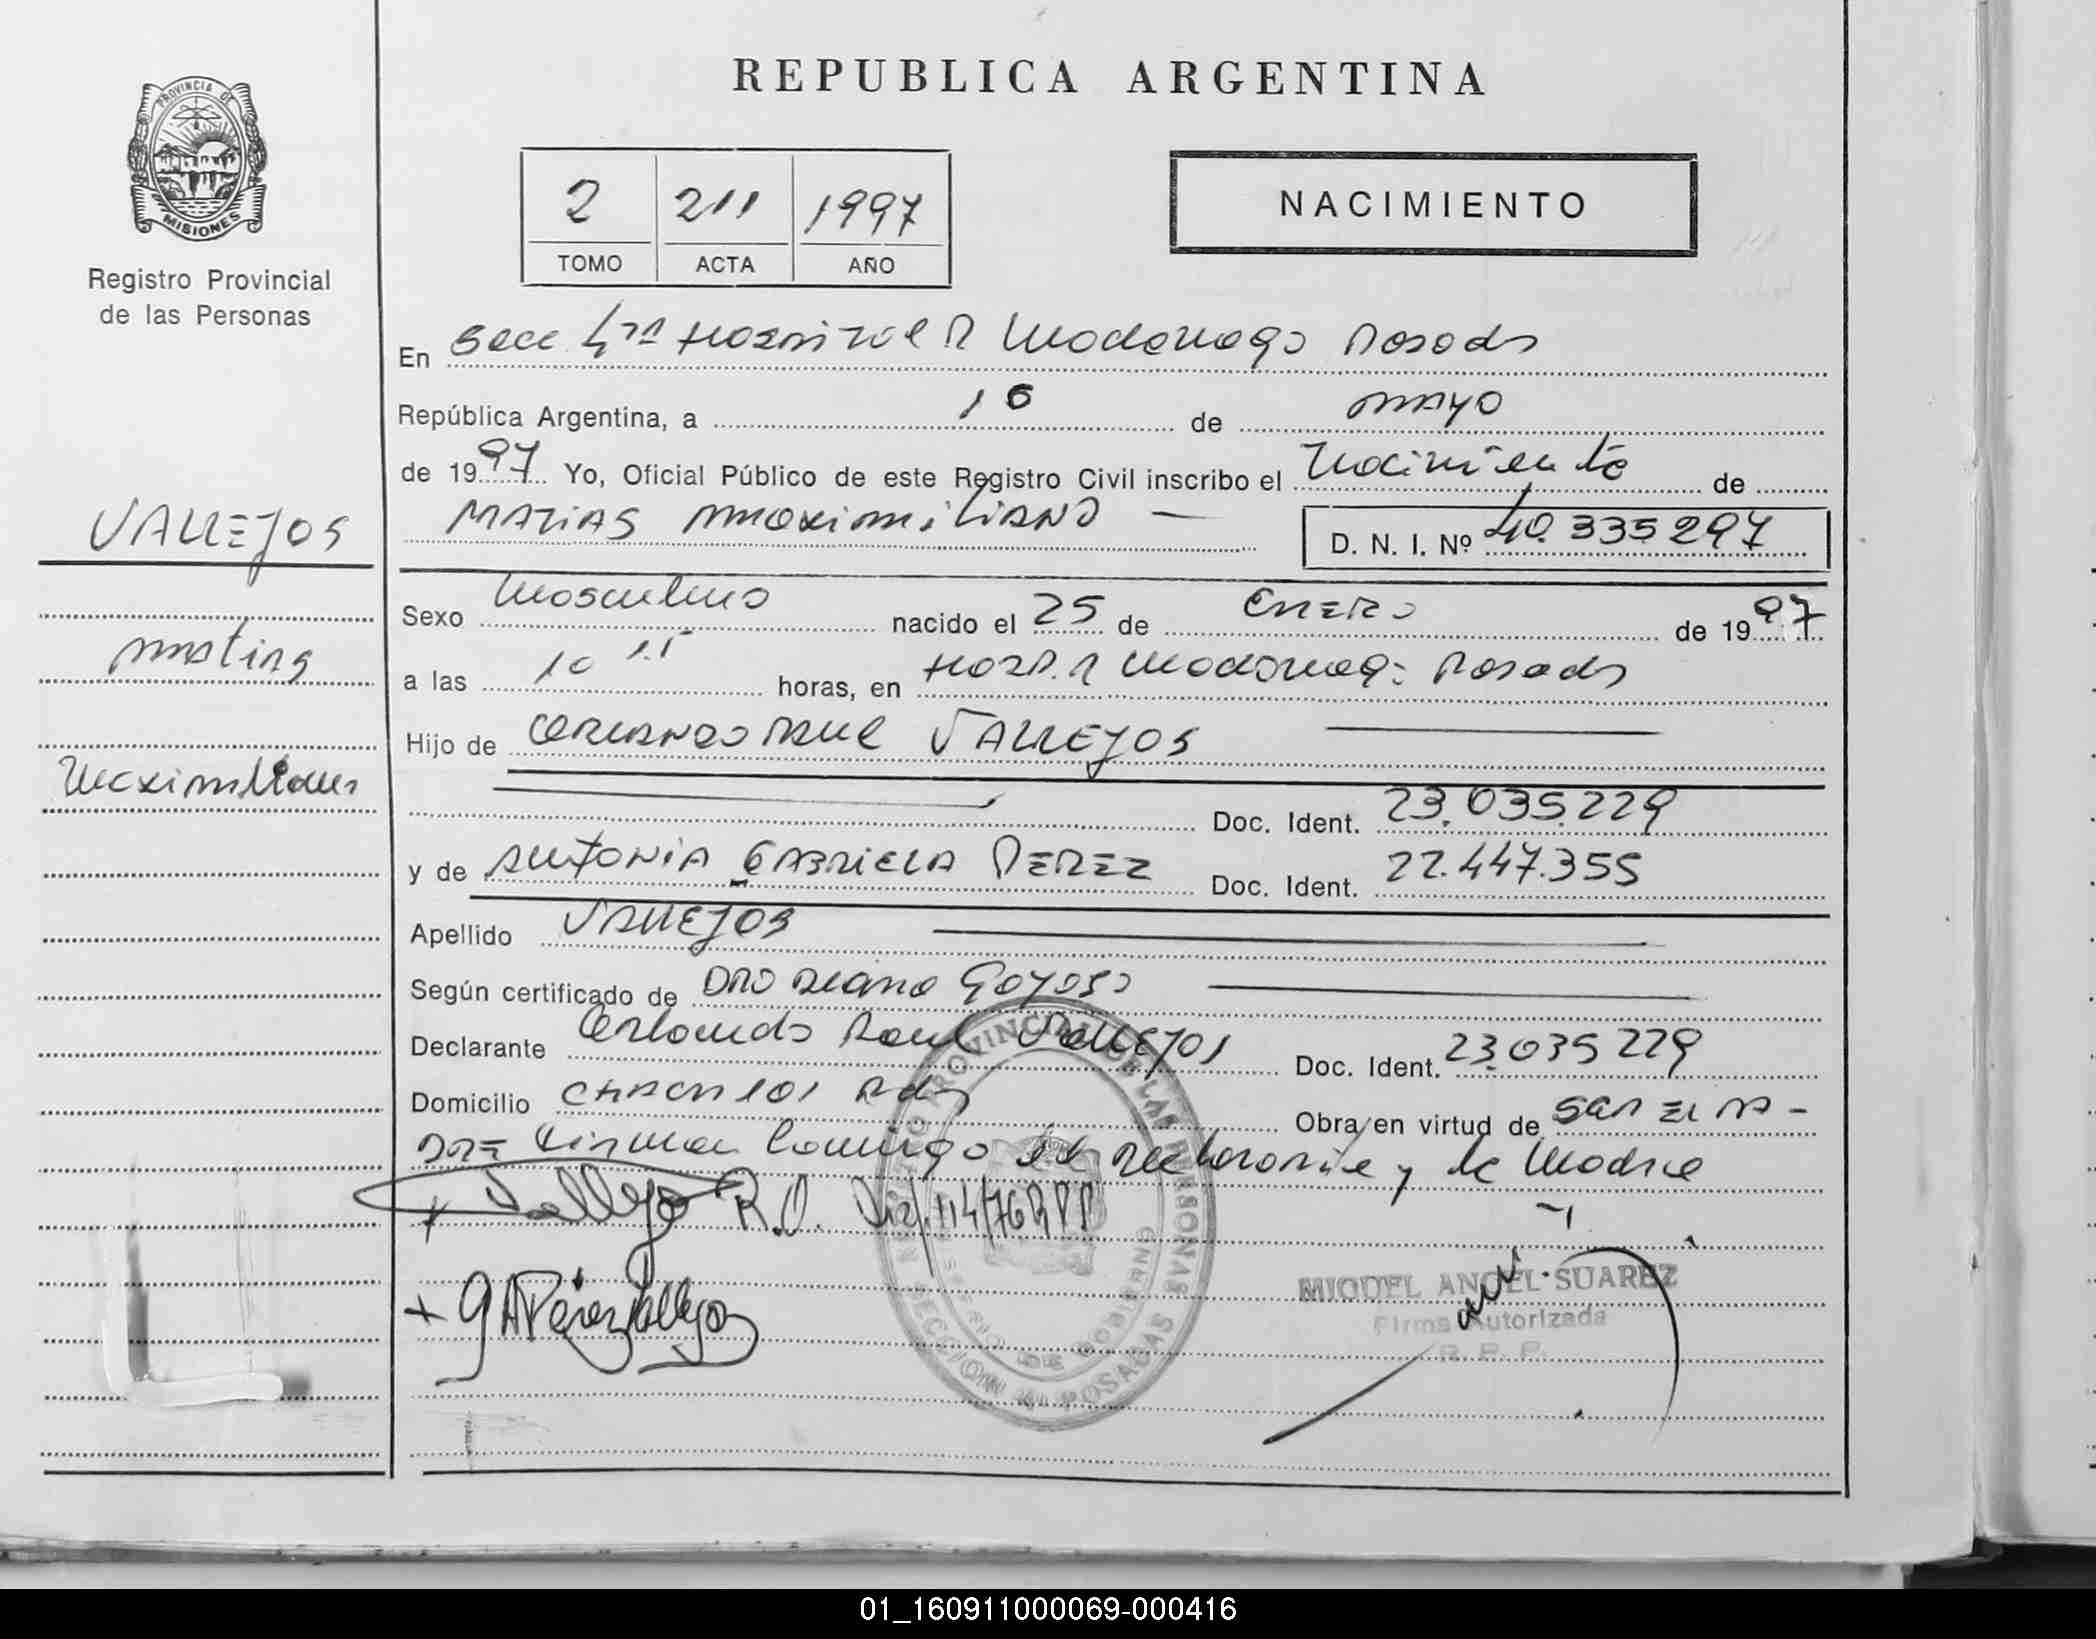 REPUBLICA ARGENTINA
PROVINCIA DE
MISIONES
Registro Provincial
de las Personas
2 211 1997
TOMO ACTA AÑO
NACIMIENTO
En Secc 4ta Hospital R Madariaga Posadas
República Argentina, a 16 de mayo
de 1997 Yo, Oficial Público de este Registro Civil inscribo el Nacimiento de
MATIAS MAXIMILIANO — D. N. I. Nº 40.335297
VALLEJOS
Matias
Maximiliano
Sexo Masculino nacido el 25 de ENERO de 1997
a las 10 15 horas, en Hosp. R Madariaga Posadas
Hijo de ORLANDO RAUL VALLEJOS
Doc. Ident. 23.035.229
y de ANTONIA GABRIELA PEREZ Doc. Ident. 22.447.355
Apellido VALLEJOS
Según certificado de Dra Goyoso
Declarante Orlando Raul VALLEJOS Doc. Ident. 23.035 229
Domicilio CHACRA 101 Pdas Obra en virtud de SER EL PA-
DRE Firman Conmigo el declarante y la Madre
Vallejo R.O. Dis. 114/76 RPP
G A Pérez Vallejos
REGISTRO PROVINCIAL DE LAS PERSONAS
SECCION 4a POSADAS
DE GOBIERNO
MIGUEL ANGEL SUAREZ
Firma Autorizada
R. P. P.
01_160911000069-000416